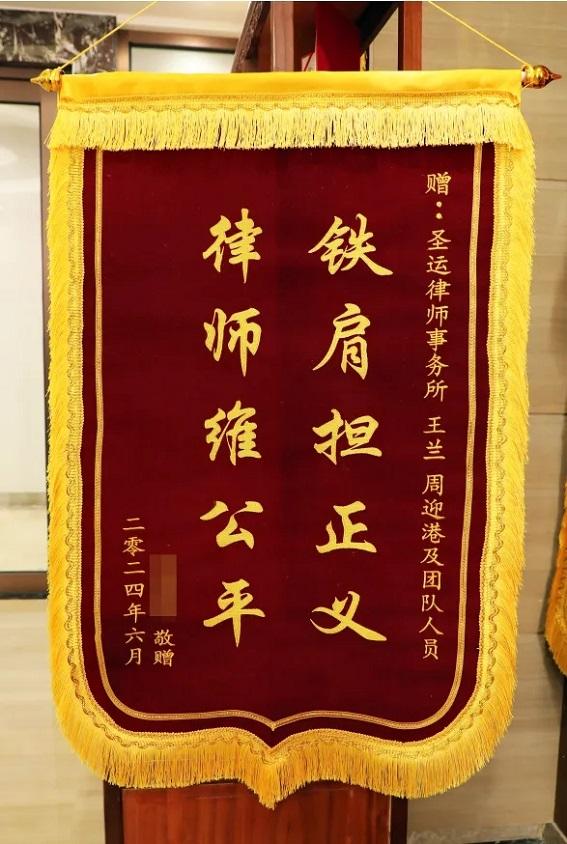 赠：圣运律师事务所 王兰 周迎港及团队人员
铁肩担正义
律师维公平
敬赠
二零二四年六月